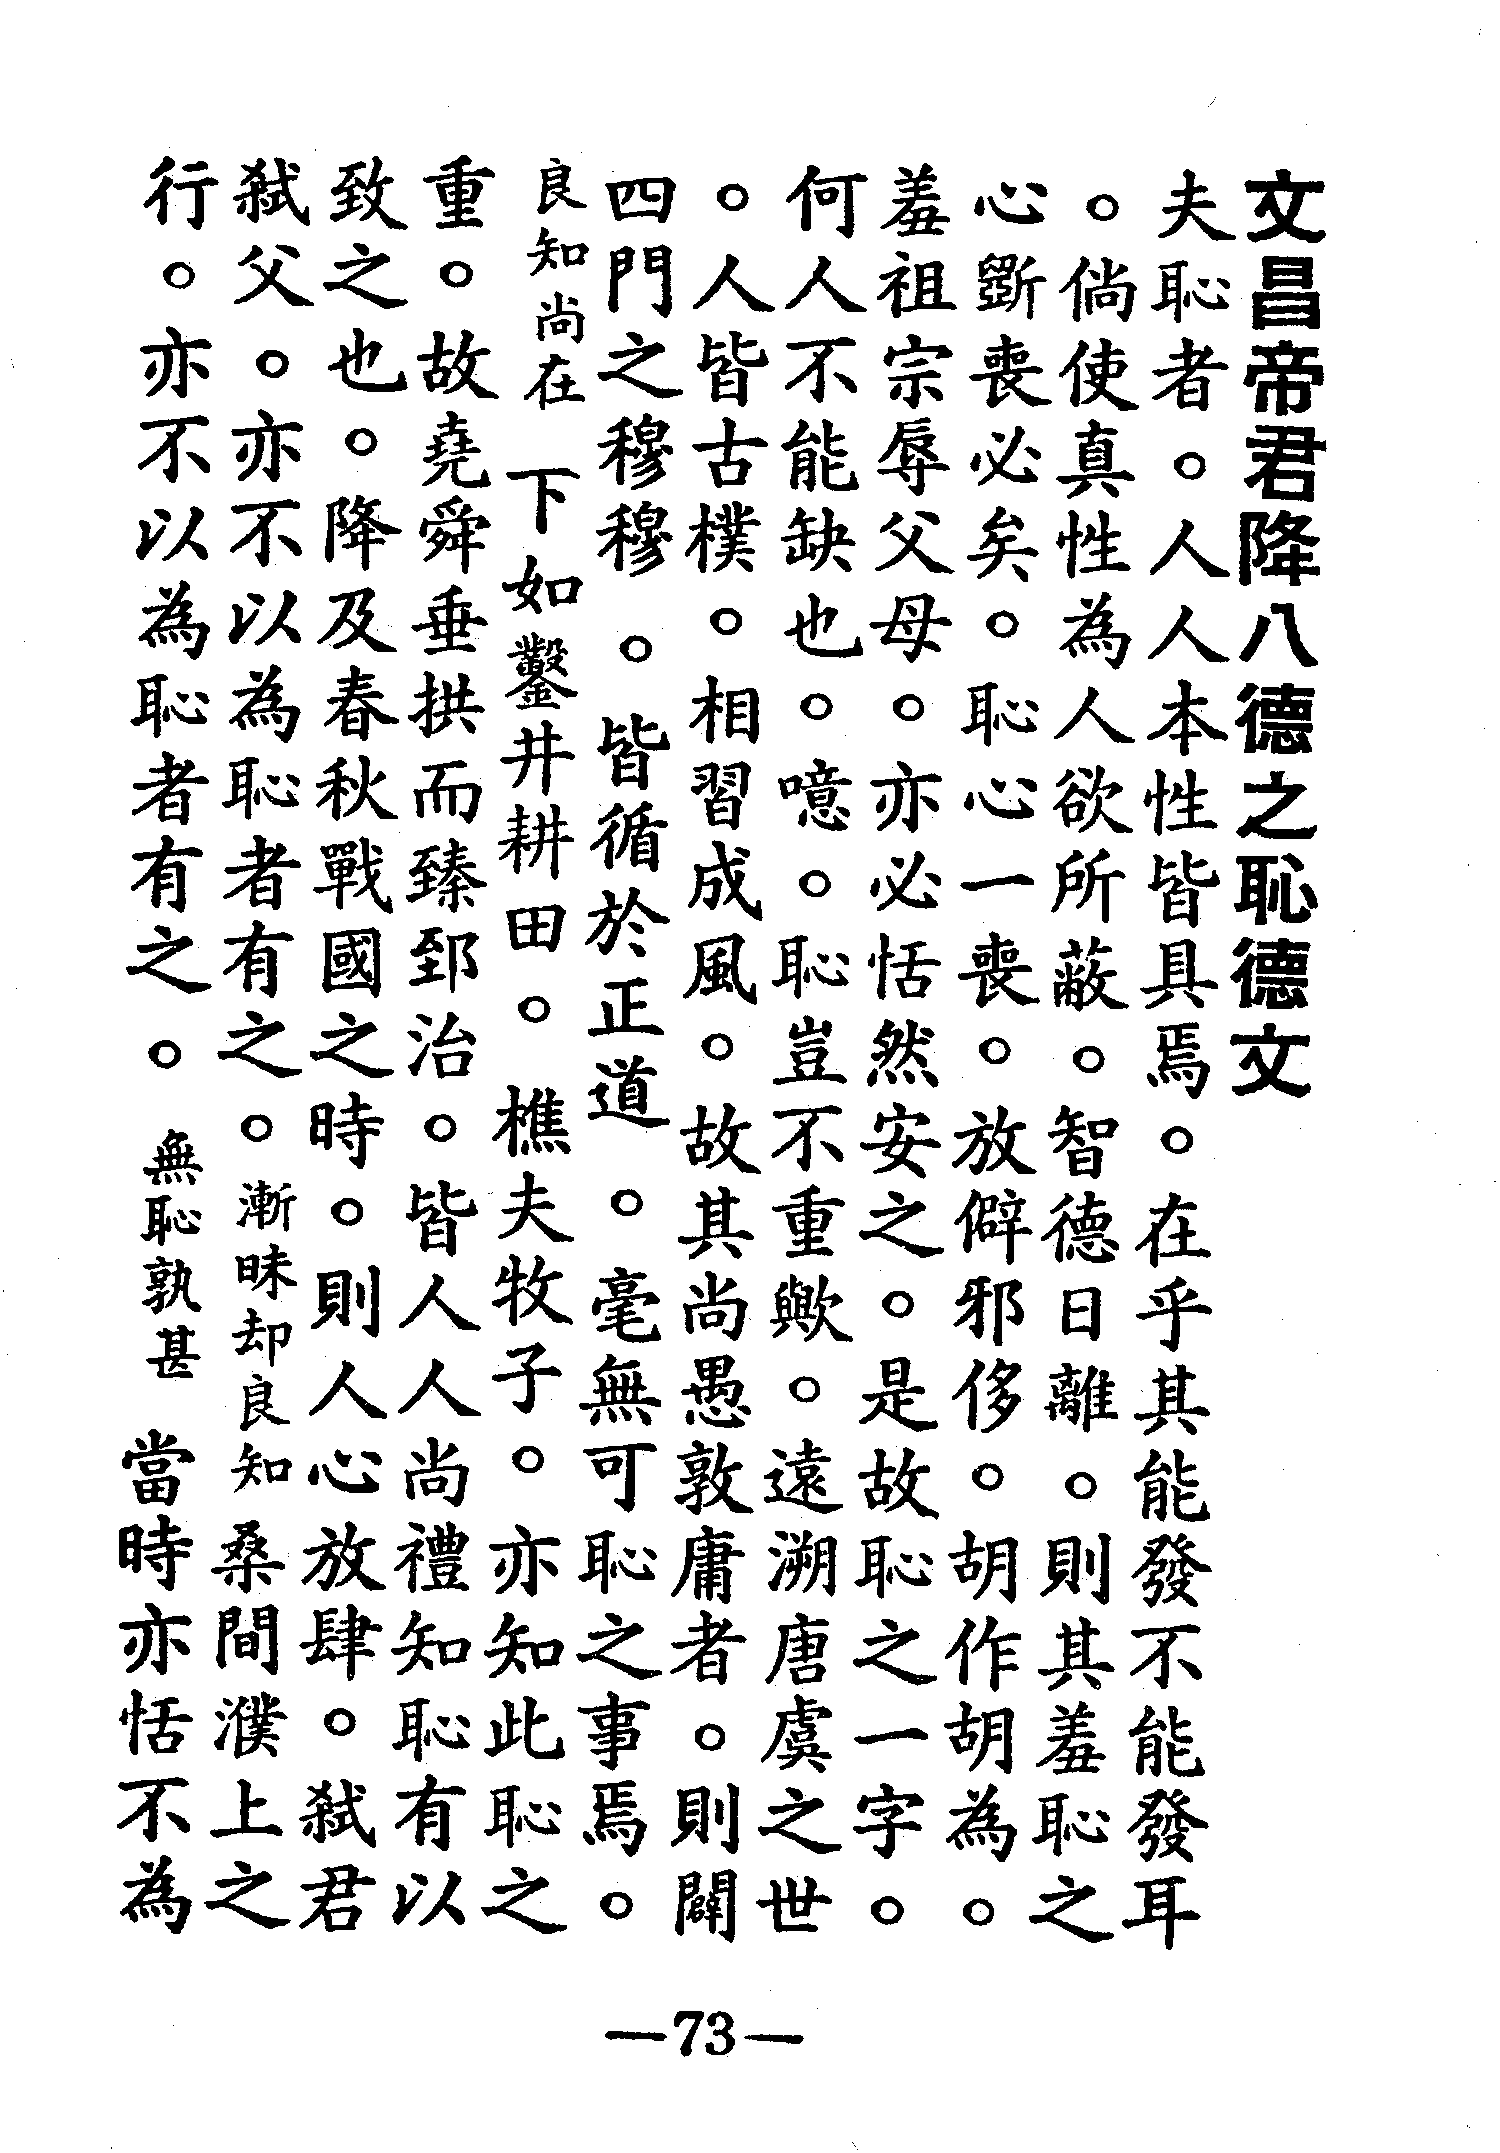 文昌帝君降八德之恥德文
夫恥者。人人本性皆具焉。在乎其能發不能發耳
。倘使真性為人欲所蔽。智德日離。則其羞恥之
心斵喪必矣。恥心一喪。放僻邪侈。胡作胡為。
羞祖宗辱父母。亦必恬然安之。是故恥之一字。
何人不能缺也。噫。恥豈不重歟。遠溯唐虞之世
。人皆古樸。相習成風。故其尚愚敦庸者。則闢
四門之穆穆。皆循於正道。毫無可恥之事焉。
良知尚在 下如鑿井耕田。樵夫牧子。亦知此恥之
重。故堯舜垂拱而臻郅治。皆人人尚禮知恥有以
致之也。降及春秋戰國之時。則人心放肆。弒君
弒父。亦不以為恥者有之。漸昧却良知 桑間濮上之
行。亦不以為恥者有之。無恥孰甚 當時亦恬不為
—73—